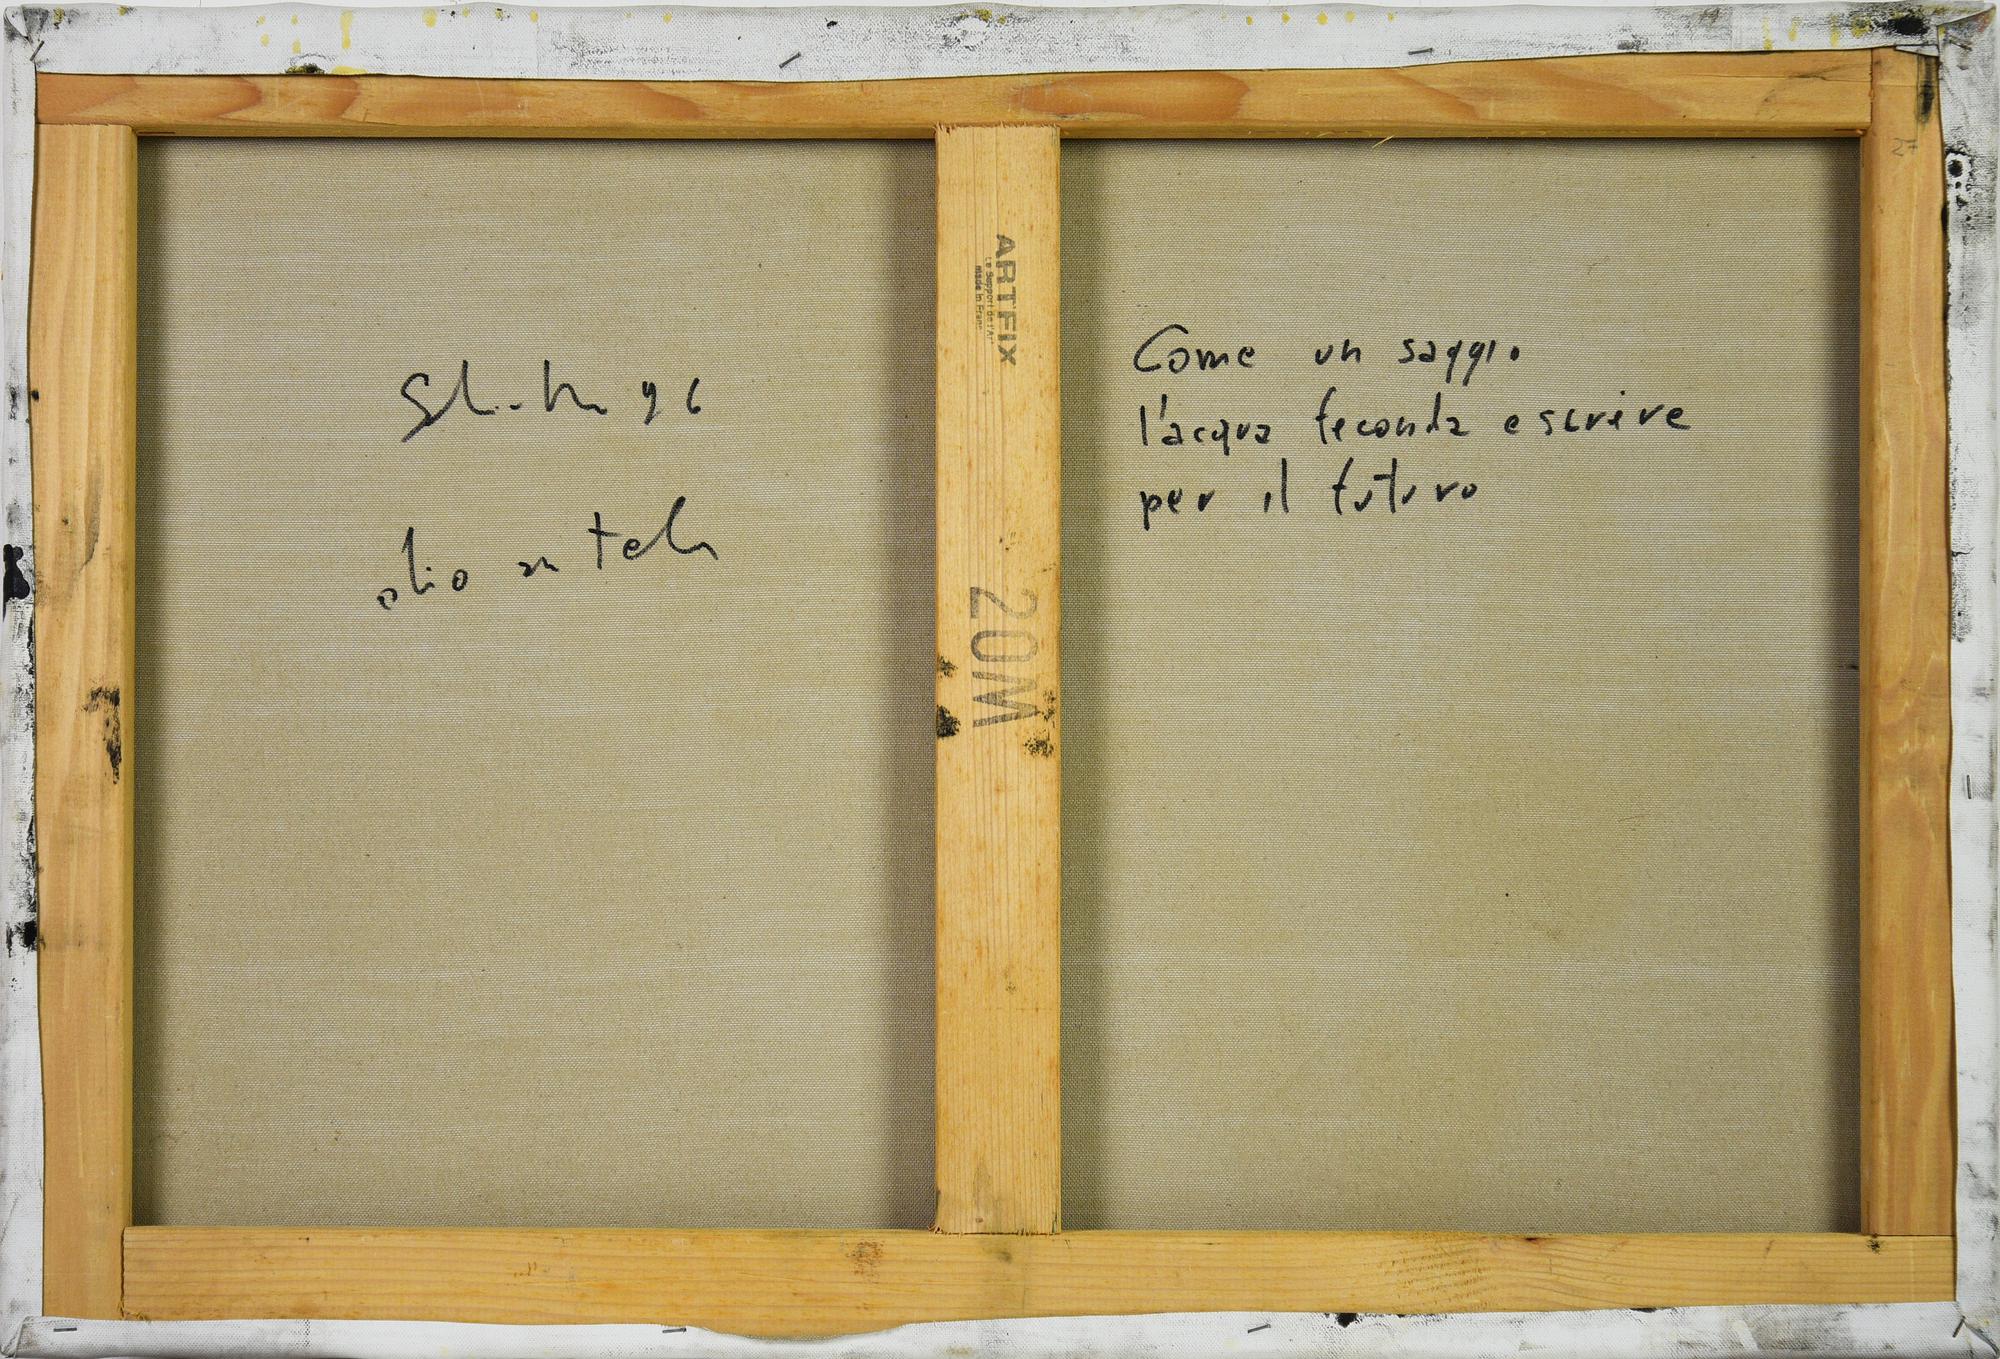 96
olio su tela
ARTFIX
Le Support de l'Art
made in France
20M
Come un saggio
l'acqua feconda e scrive
per il futuro
27